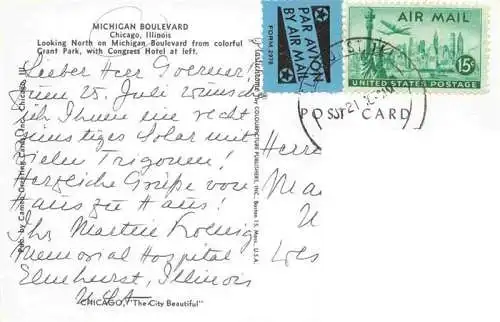 MICHIGAN BOULEVARD
Chicago, Illinois
Looking North on Michigan Boulevard from colorful
Grant Park, with Congress Hotel at left.
Lieber Herr Goerner!
Zum 25. Juli wünsche
ich Ihnen eine recht
günstiges Solar mit
vielen Trigonen!
Herzliche Grüße von
Haus zu Haus!
Ihr Martin Koenig
Memorial Hospital
Elmhurst, Illinois
USA
CHICAGO, "The City Beautiful"
Pub. by Cameo Greeting Cards, Inc., Chicago, Ill.
by COLOURPICTURE PUBLISHERS, INC., Boston 15, Mass., U.S.A.
FORM 2978
PAR AVION
BY AIR MAIL
AIR MAIL
15¢
UNITED STATES POSTAGE
POST CARD
Herr